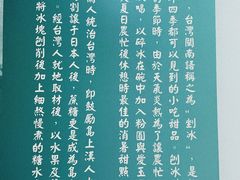 ，台灣閩南語稱之為“剉冰”，是
四季都可以見到的小吃甜品。刨冰
的時節，由於天氣炎熱為了讓農忙
喝，以碎冰在碗中加入粉圓與愛玉
夏日農忙後休憩時最佳的消暑甜點
人統治台灣時，即鼓勵島上漢人
割讓于日本人後，蔗糖更是成為島
。經台灣人就地取材後，以水果及
將冰塊刨削後加上細熬慢煮的糖水